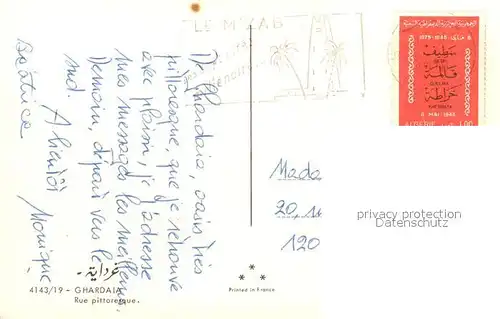 De Ghardaia, oasis très
pittoresque, que je retrouve
avec plaisir, j'adresse
mes messages les meilleurs.
Demain, départ vers le
sud. A bientôt
Monique
Béatrice
غرداية -
4143/19 - GHARDAIA
Rue pittoresque.
Printed in France
LE M'ZAB
1975-1945
سطيف
SETIF
قالمة
GUELMA
خراطة
KHERRATA
8 MAI 1945
ALGERIE 1.00
Mada
20,
120
privacy protection
watermark